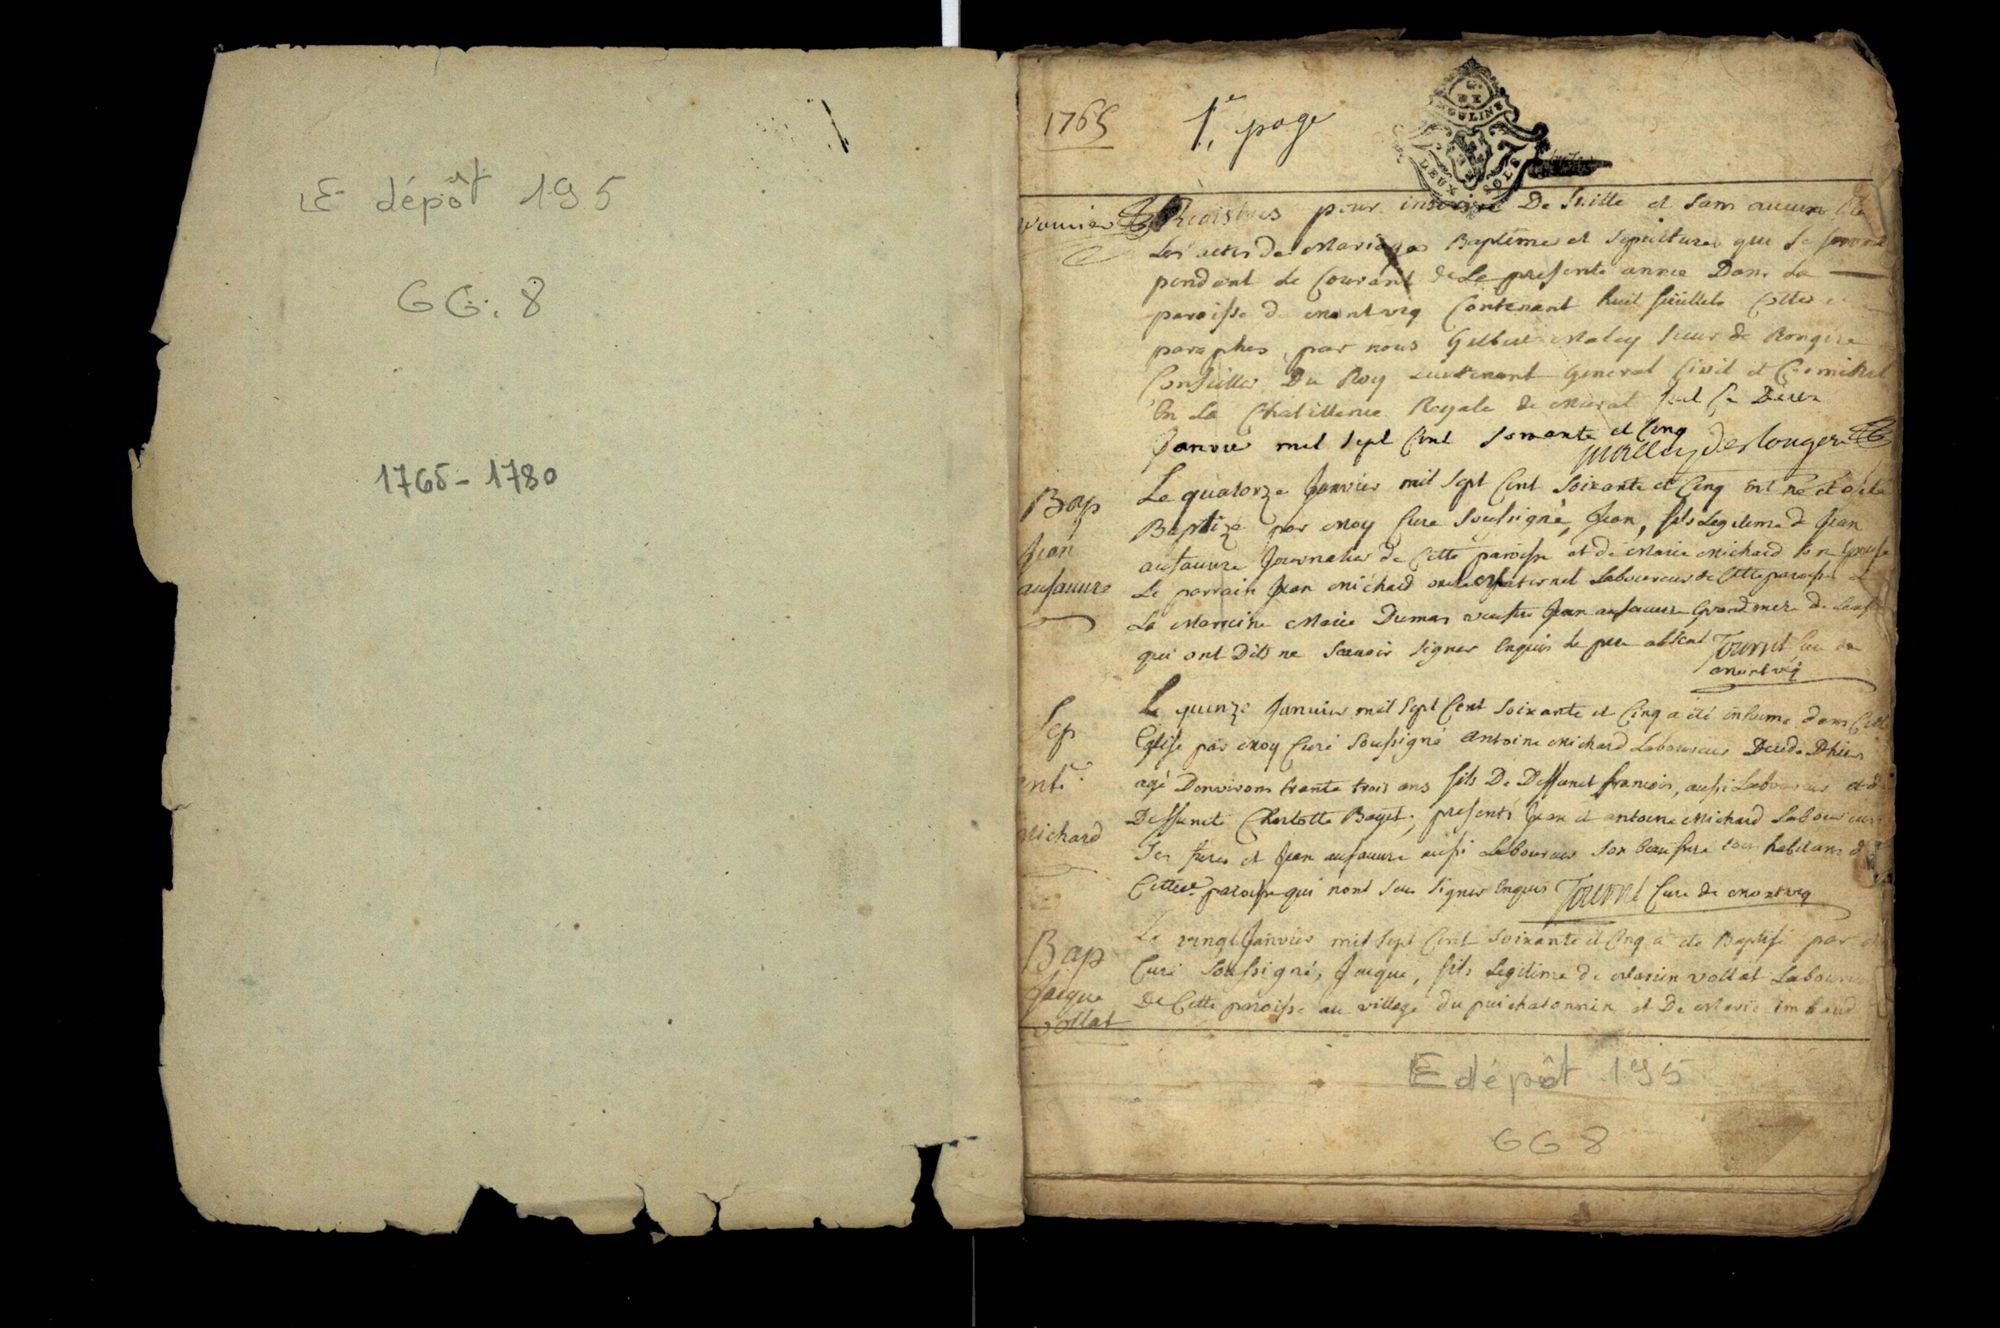 E dépôt 195
GG. 8
1765-1780
1765
1re page
G. DE MOULINS
DEUX SOLS
premier
Registres pour inscrire De Suitte et Sans aucun
Les actes de Mariages Baptêmes et Sepultures que Se feront
pendant Le Courant de Le presente année Dans La
paroisse de Montvicq Contenant huit feüillets Cottés et
paraphés par nous Gilbert Maley Sieur de Rongere
Conseiller Du Roy Lieutenant General Civil et Criminel
En La Chatellenie Royale de Murat fait Ce Deux
Janvier mil Sept Cent Soixante et Cinq
Bap
Jean
aufauvre
Le quatorze Janvier mil Sept Cent Soixante et Cinq est né et a été
Baptizé par Moy Curé Soussigné, Jean, fils Legitime de Jean
aufauvre Journalier de Cette paroisse et de Marie Michard Son Epouse
Le parrain Jean Michard oncle Maternel Laboureur de Cette paroisse et
La Marraine Marie Dumas veufve Jean aufauvre Grand mere de
qui ont Dits ne Scavoir Signer Enquis Le pere absent Tournet Curé de
Montvicq
Sep
Michard
Le quinze Janvier mil Sept Cent Soixante et Cinq a été inhumé dans Cette
Eglise par Moy Curé Soussigné Antoine Michard Laboureur Decedé D'hier
agé D'environs trante trois ans fils De Deffunct François, aussi Laboureur et de
Deffuncte Charlotte Bayet, presents Jean et antoine Michard Laboureurs
Ses freres et Jean aufauvre aussi Laboureur Son beaufrere tous habitans de
Cette paroisse qui n'ont Sceu Signer Enquis Tournet Curé de Montvicq
Bap
Jacque
Vollat
Le vingt Janvier mil Sept Cent Soixante et Cinq a ete Baptisé par
Curé Soussigné, Jacque, fils Legitime de Marien Vollat Laboureur
De Cette paroisse au village du puichatonnin et De Marie Imbaud
E dépôt 195
GG 8